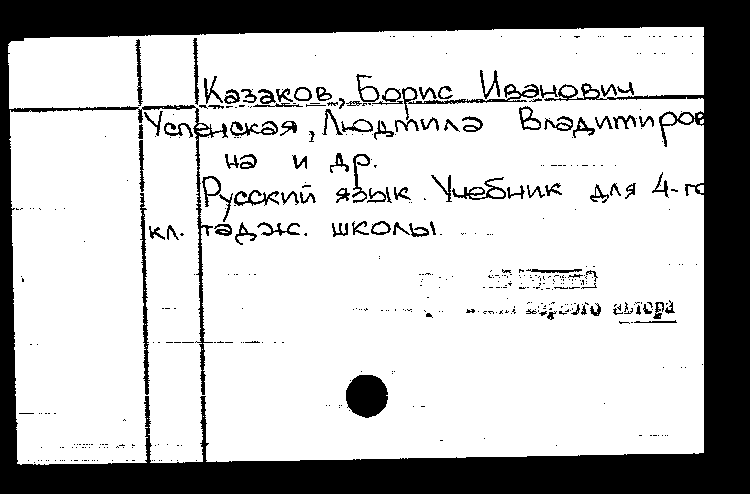 Казаков, Борис Иванович
Успенская, Людмила Владимиров
на и др.
Русский язык. Учебник для 4-го
кл. тадж. школы.
первого автора